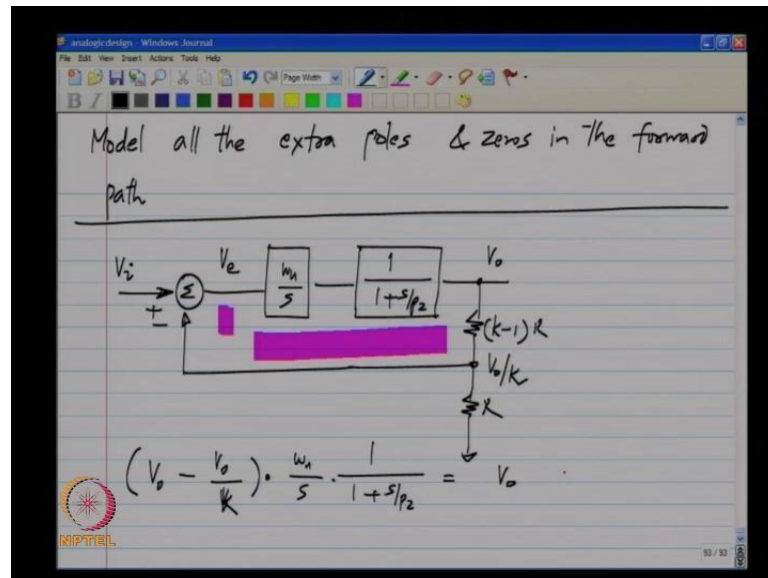 analogicdesign - Windows Journal
File Edit View Insert Actions Tools Help
Page Width
B I
Model all the extra poles & zeros in the forward
path
Vi + − Σ Ve ωu/s 1/(1+s/p2) Vo
(k-1)R
Vo/k
R
(Vo − Vo/k) · ωu/s · 1/(1+s/p2) = Vo
NPTEL
93 / 93